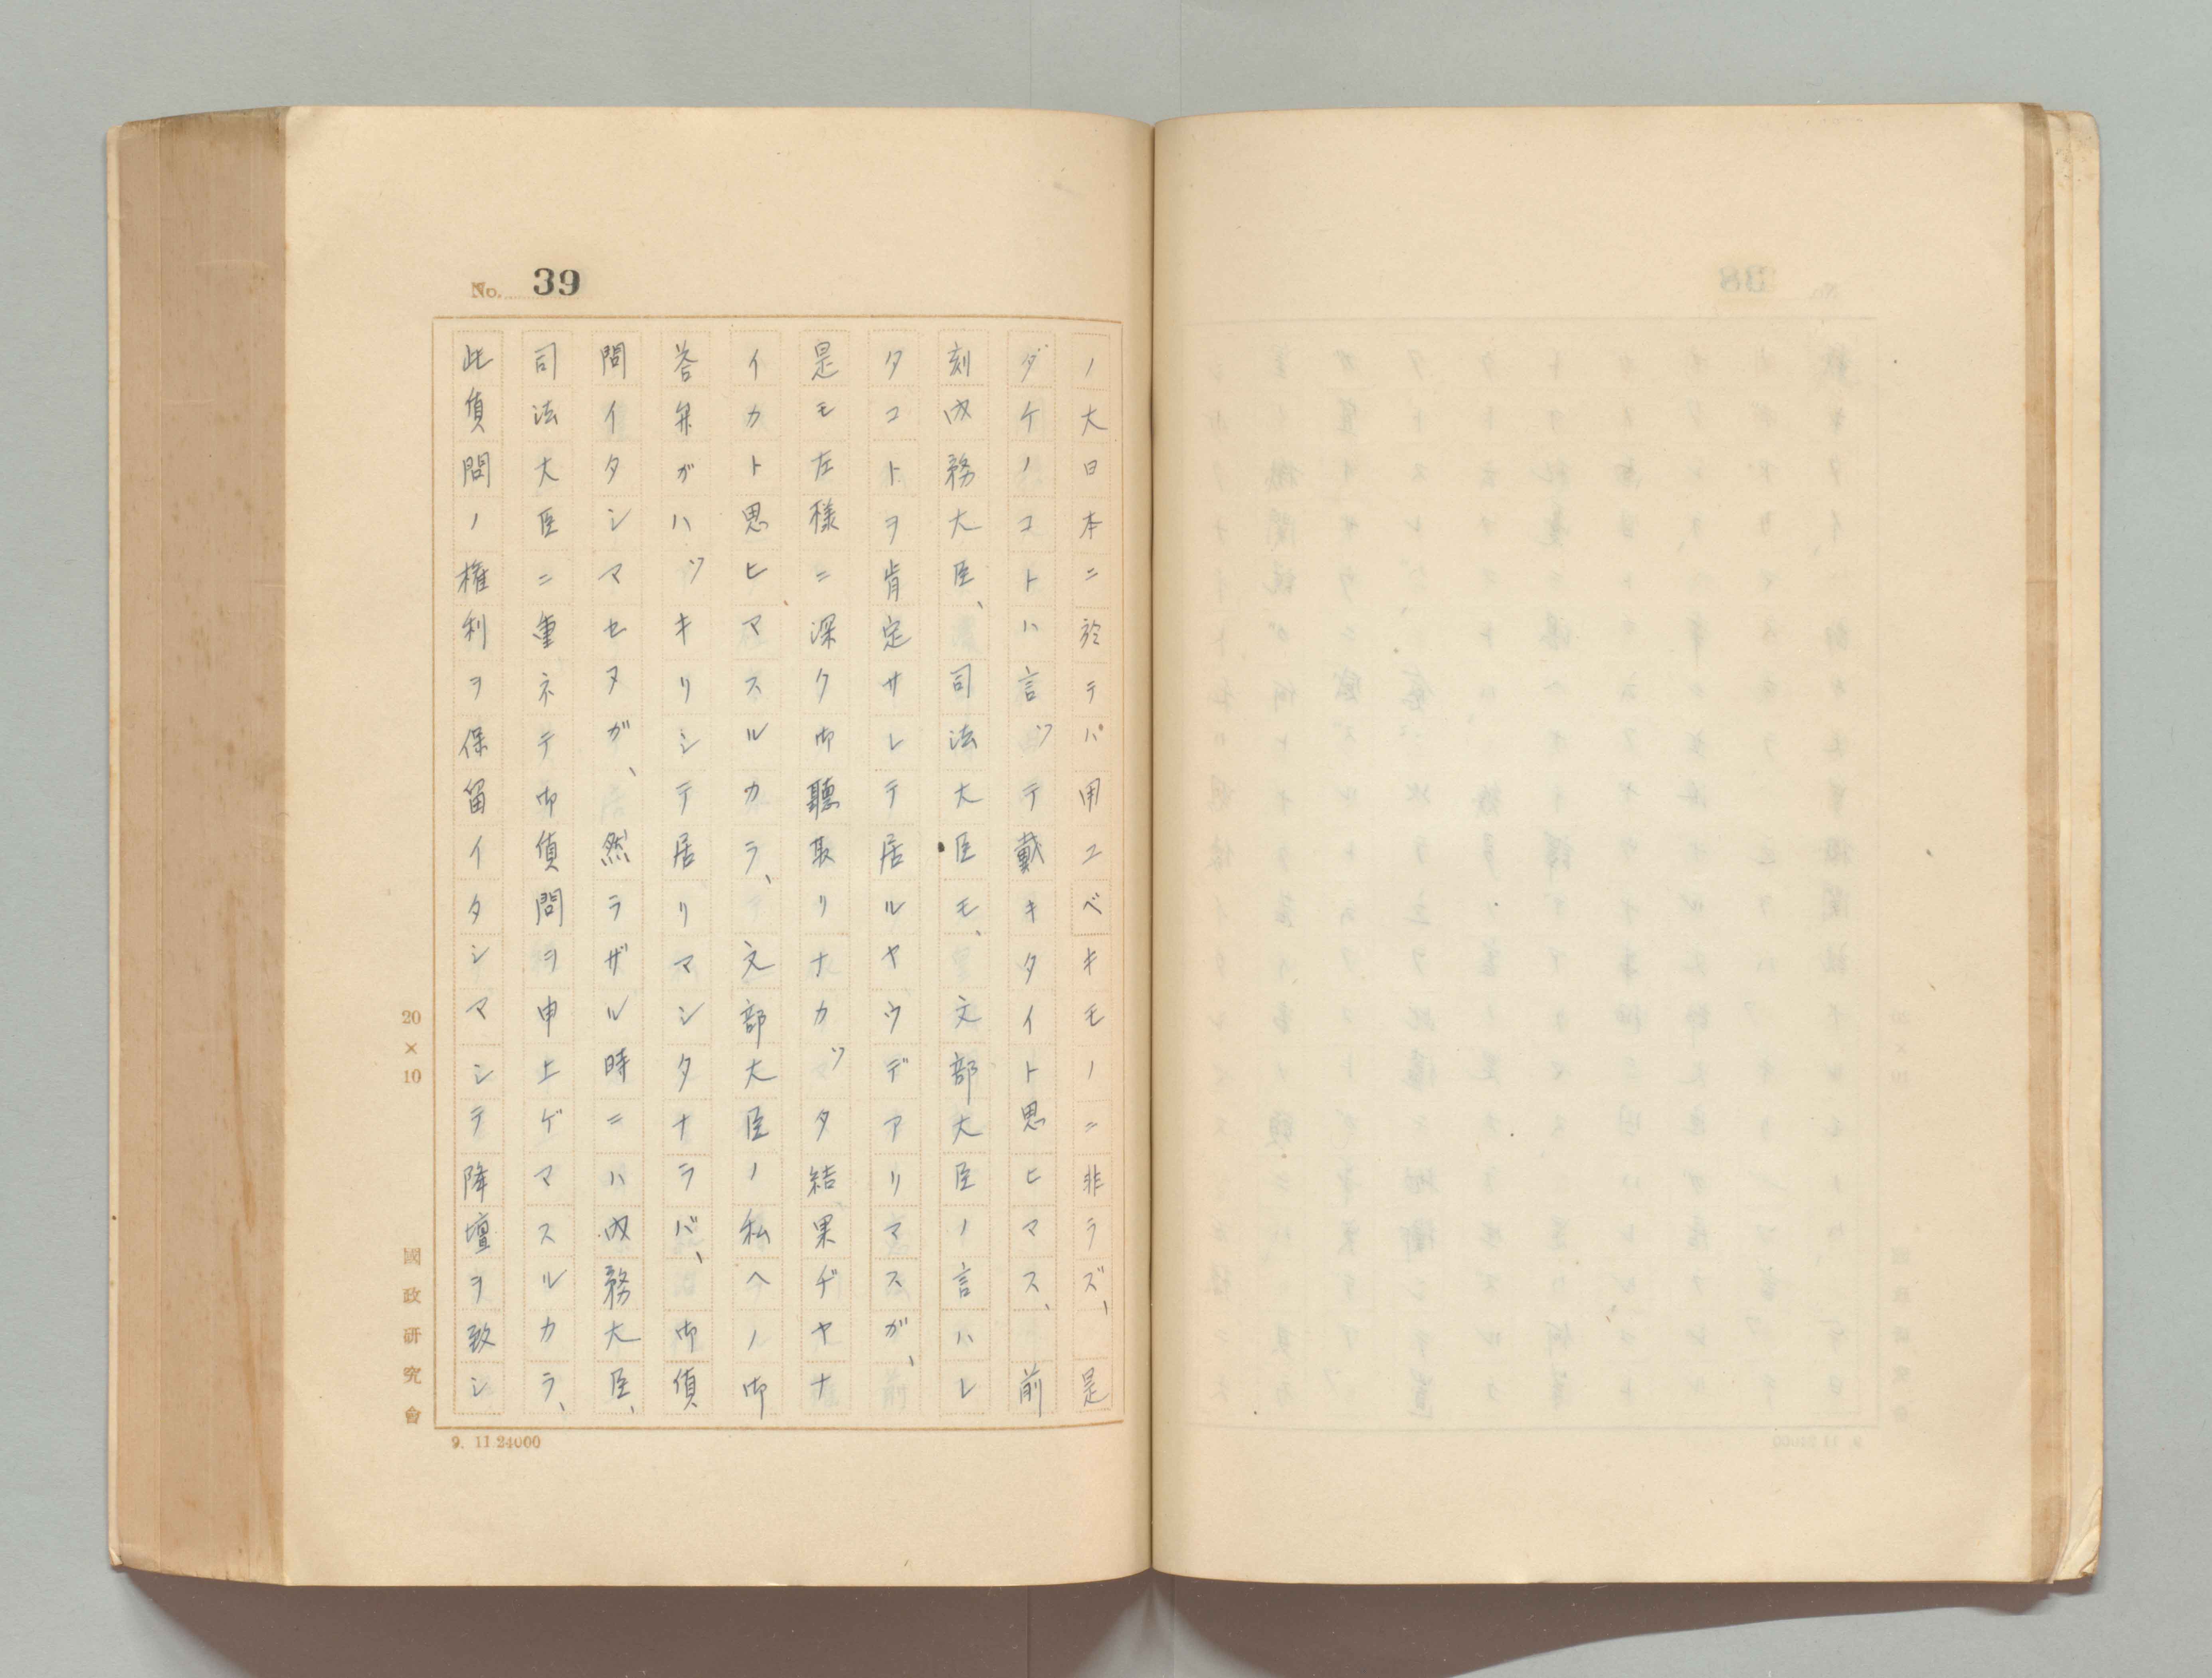 No. 39
ノ大日本ニ於テパ用ユベキモノニ非ラズ、是
ダケノコトハ言ッテ戴キタイト思ヒマス、前
刻内務大臣、司法大臣モ、文部大臣ノ言ハレ
タコトヲ肯定サレテ居ルヤウデアリマスガ、
是モ左様ニ深ク御聽取リナカッタ結果ヂヤナ
イカト思ヒマスルカラ、文部大臣ノ私ヘノ御
答弁ガハッキリシテ居リマシタナラバ、御質
問イタシマセヌガ、然ラザル時ニハ内務大臣、
司法大臣ニ重ネテ御質問ヲ申上ゲマスルカラ、
此質問ノ権利ヲ保留イタシマシテ降壇ヲ致シ
20×10
國政研究會
9. 11.24000